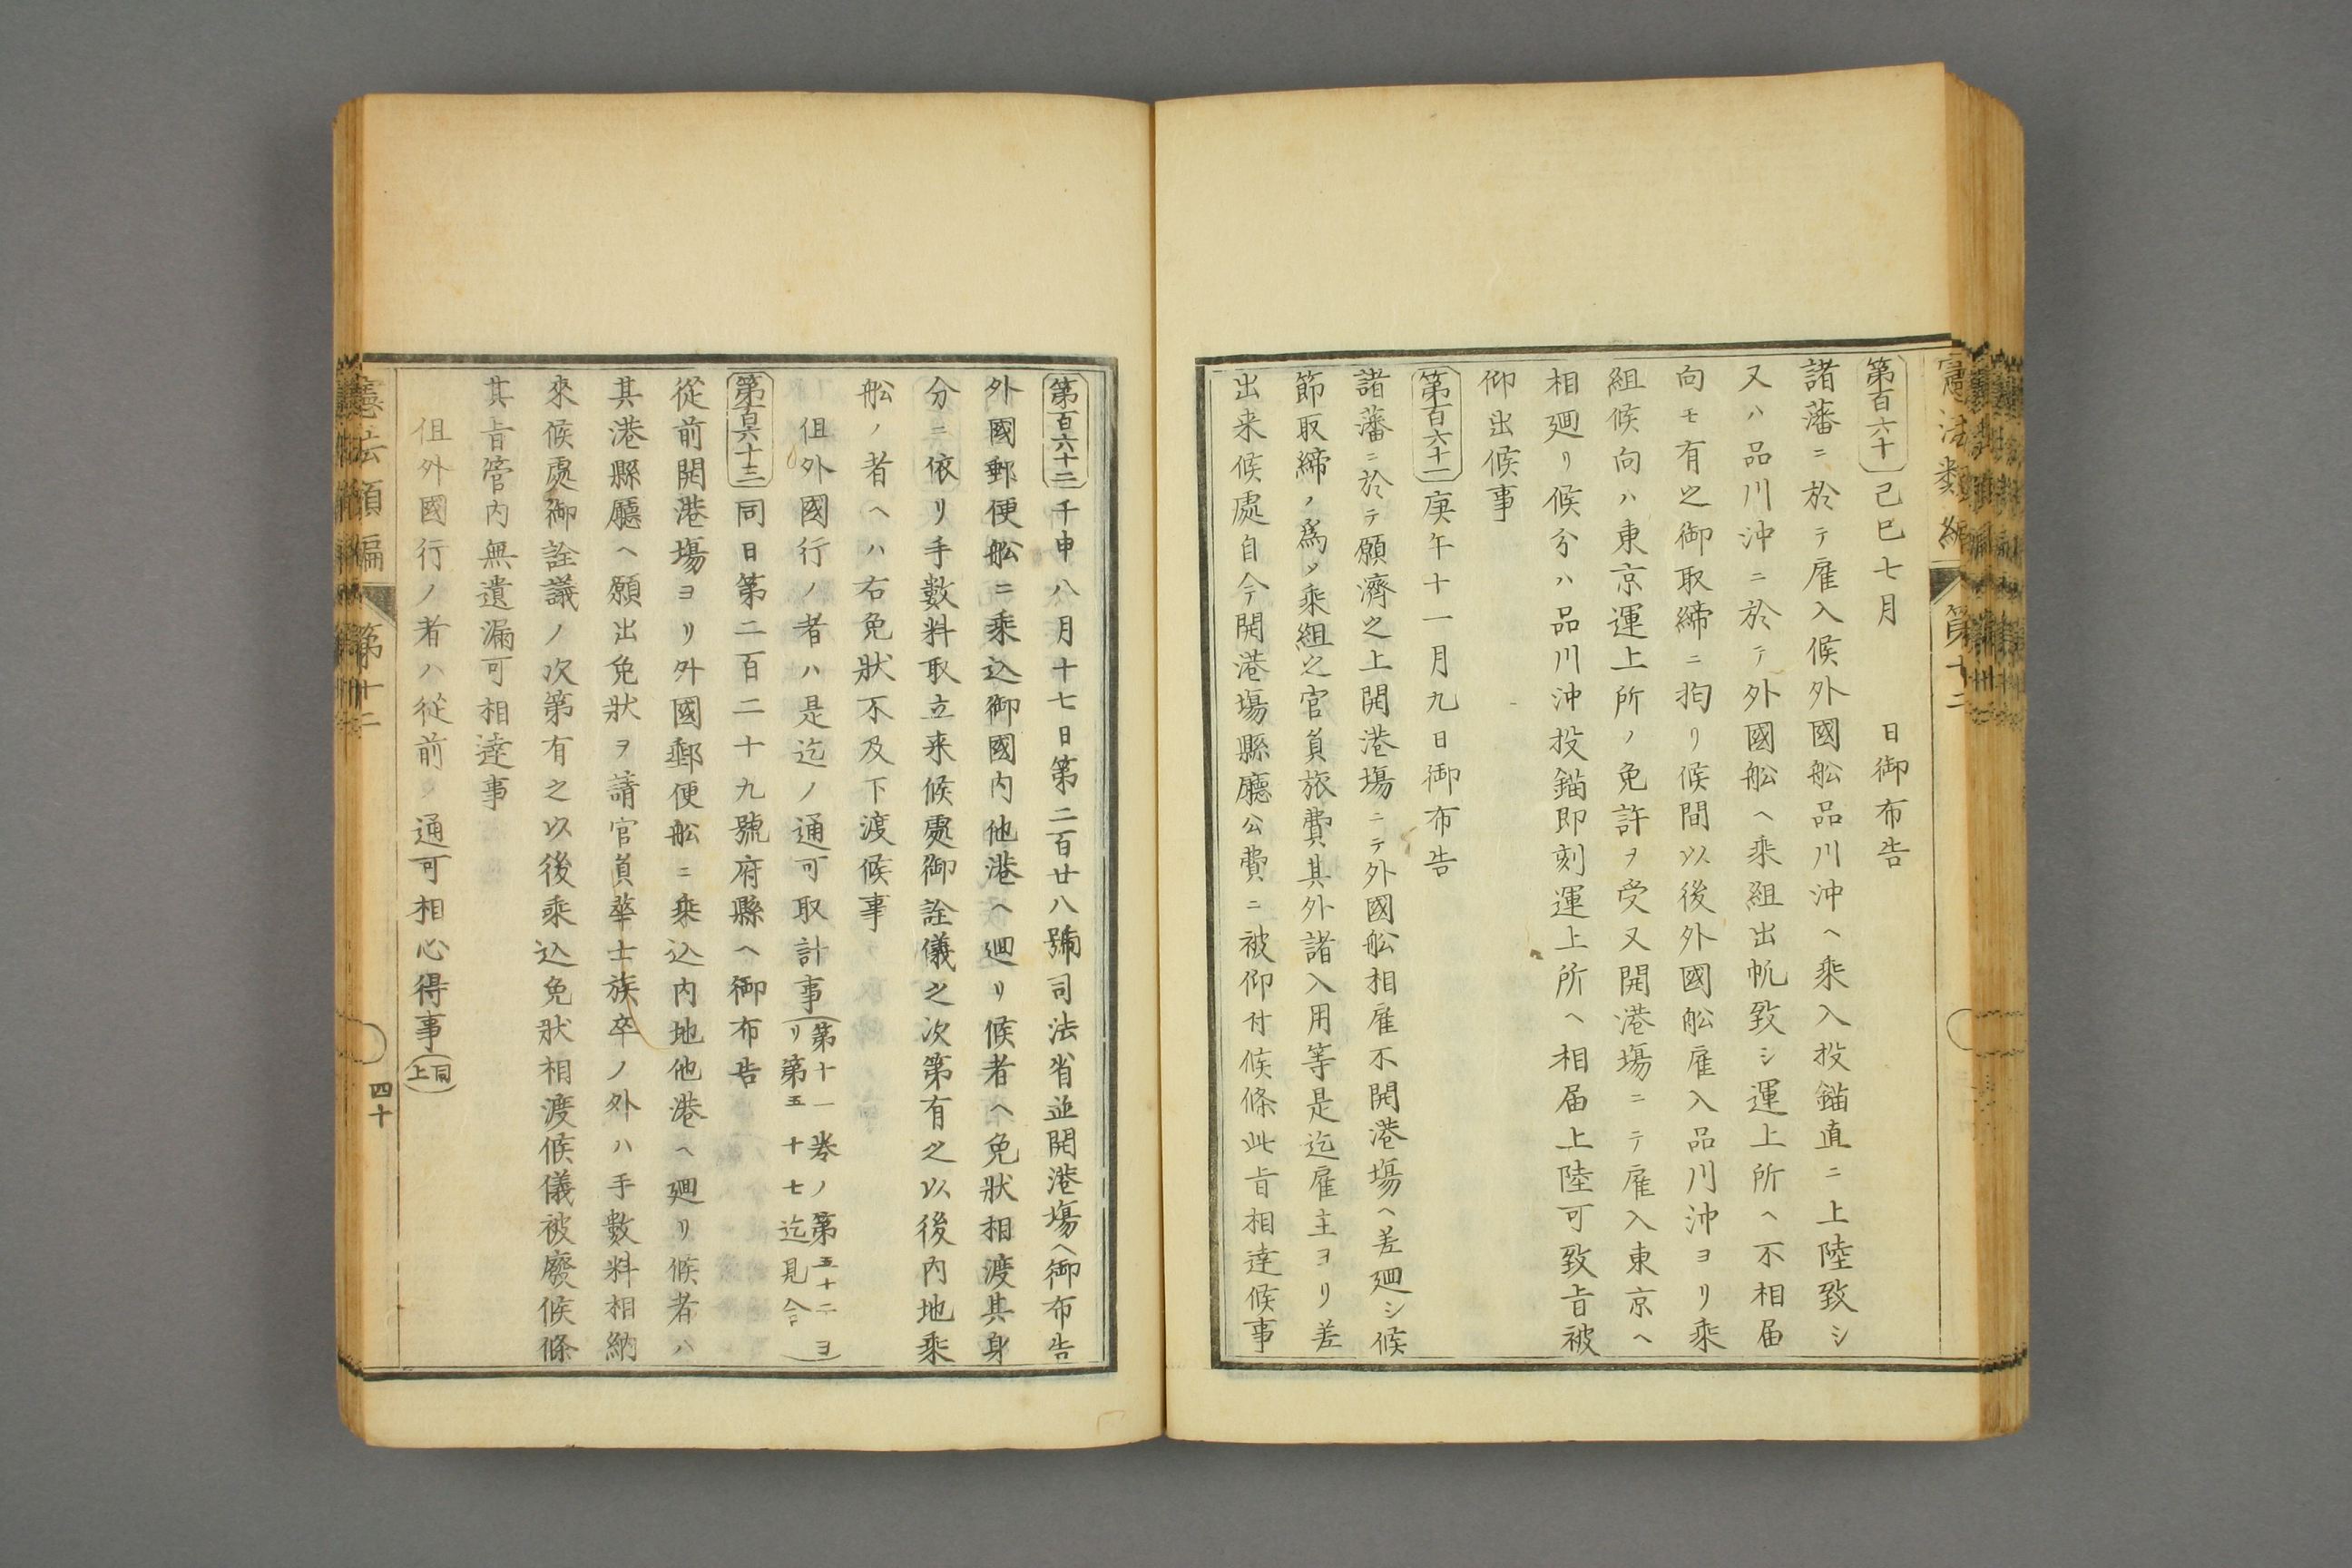 憲法類編
第十二
第百六十 己巳七月 日御布告
諸藩ニ於テ雇入候外國舩品川沖ヘ乘入投錨直ニ上陸致シ
又ハ品川沖ニ於テ外國舩ヘ乘組出帆致シ運上所ヘ不相届
向モ有之御取締ニ拘リ候間以後外國舩雇入品川沖ヨリ乘
組候向ハ東京運上所ノ免許ヲ受又開港場ニテ雇入東京ヘ
相廻リ候分ハ品川沖投錨即刻運上所ヘ相届上陸可致旨被
仰出候事
第百六十一 庚午十一月九日御布告
諸藩ニ於テ願濟之上開港場ニテ外國舩相雇不開港場ヘ差廻シ候
節取締ノ爲メ乘組之官員旅費其外諸入用等是迄雇主ヨリ差
出来候處自今開港場縣廳公費ニ被仰付候條此旨相達候事
第百六十二 壬申八月十七日第二百廿八號司法省並開港場ヘ御布告
外國郵便舩ニ乘込御國内他港ヘ廻リ候者ヘ免狀相渡其身
分ニ依リ手數料取立来候處御詮儀之次第有之以後内地乘
舩ノ者ヘハ右免狀不及下渡候事
但外國行ノ者ハ是迄ノ通可取計事(第十一巻ノ第五十二ヨ
リ第五十七迄見合)
第百六十三 同日第二百二十九號府縣ヘ御布告
從前開港場ヨリ外國郵便舩ニ乘込内地他港ヘ廻リ候者ハ
其港縣廳ヘ願出免狀ヲ請官員華士族卒ノ外ハ手數料相納
來候處御詮議ノ次第有之以後乘込免狀相渡候儀被廢候條
其旨管内無遺漏可相達事
但外國行ノ者ハ從前ノ通可相心得事(同上)
憲法類編
第十二
四十